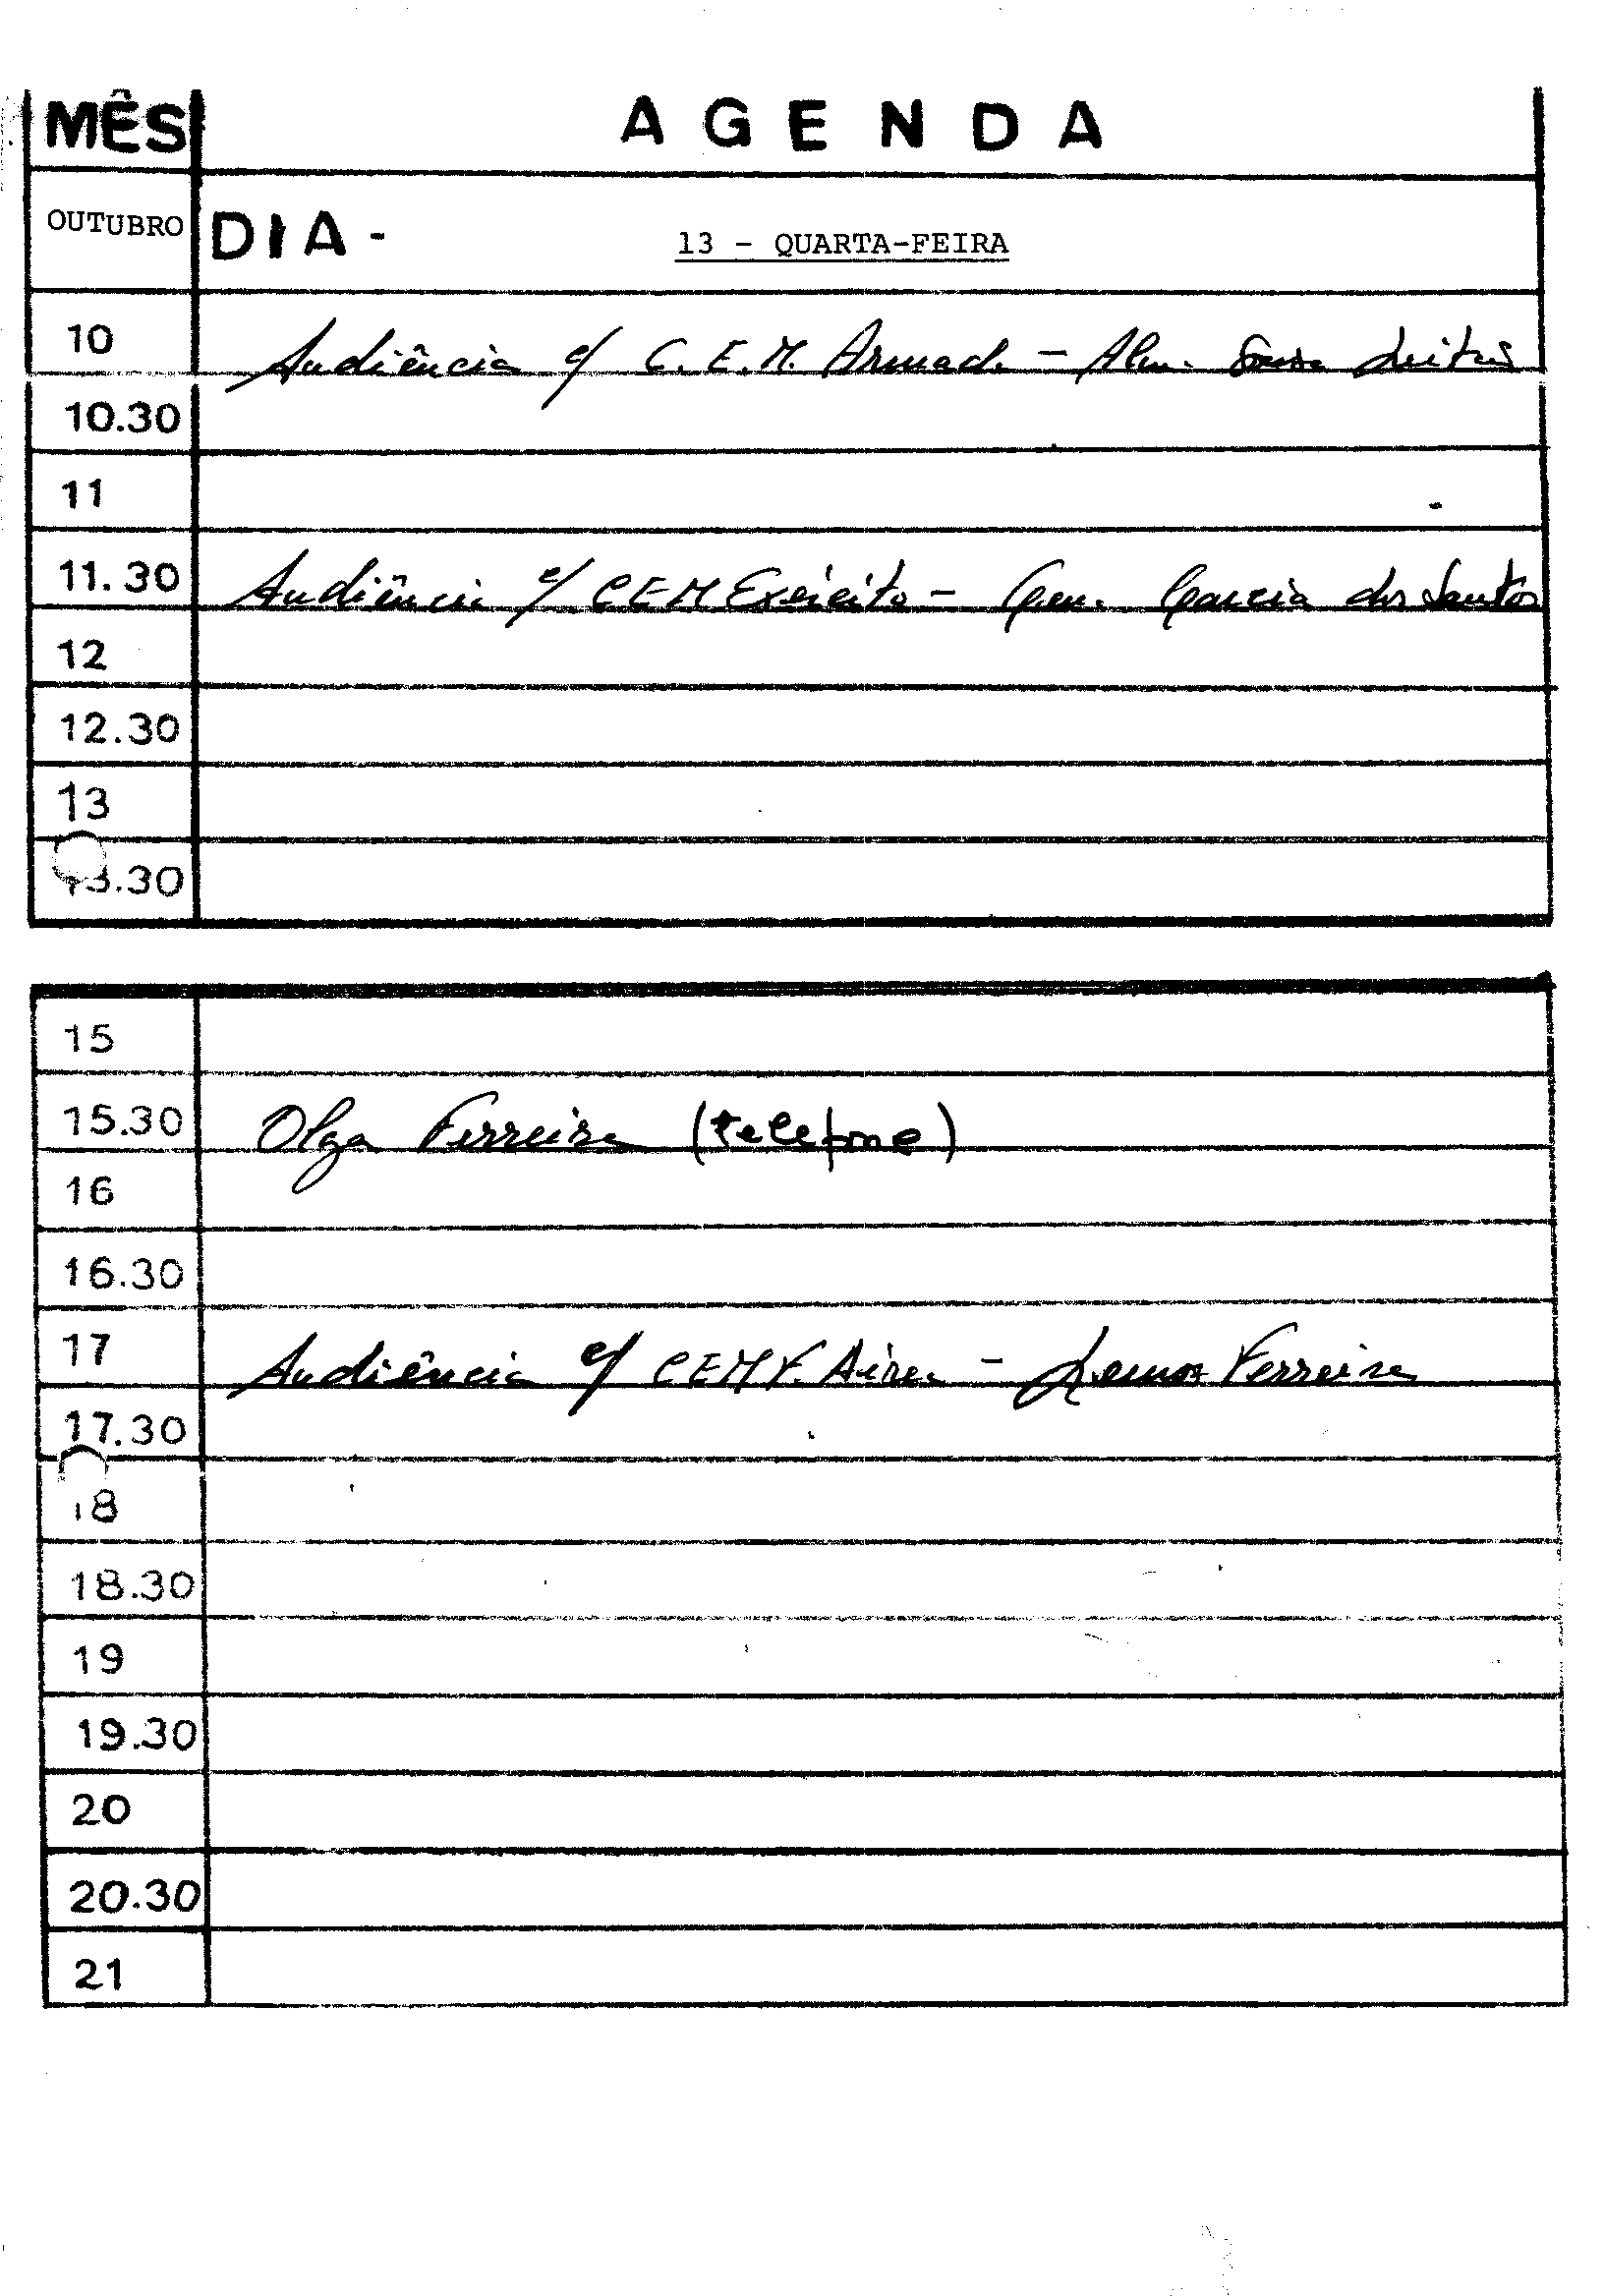 MÊS AGENDA
OUTUBRO DIA - 13 - QUARTA-FEIRA
10 Audiência c/ C.E.M. Armada - Alm. Sousa Leitão
10.30
11
11.30 Audiência c/ CEMExército - Gen. Garcia dos Santos
12
12.30
13
13.30
15
15.30 Olga Ferreira (telefone)
16
16.30
17 Audiência c/ CEM F. Aérea - Lemos Ferreira
17.30
18
18.30
19
19.30
20
20.30
21